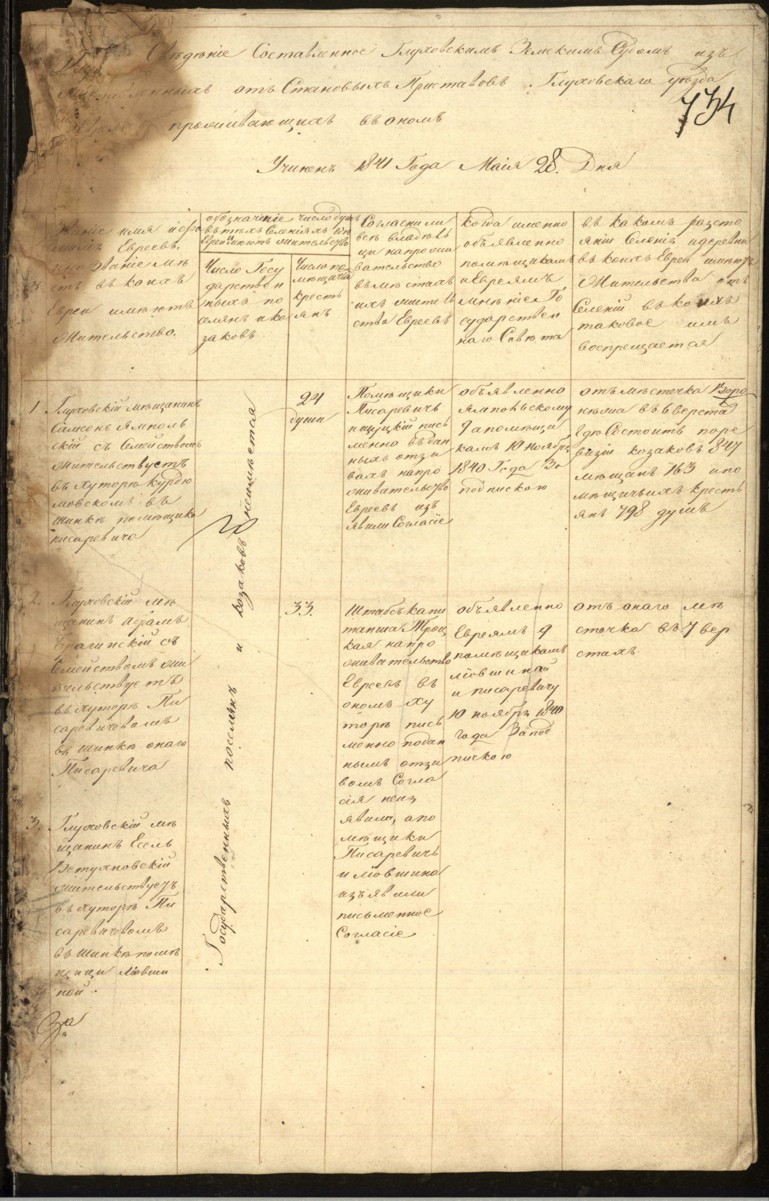 Сведение Составленное Глуховскимъ Земскимъ Судомъ изъ
отъ Становыхъ Приставовъ Глуховскаго уезда
проживающихъ въ ономъ
734
Учинен 1841 Года Маія 28. Дня
имя и
Евреевъ,
въ коихъ
Евреи имеютъ
Жительство.
обозначение число душъ
Число Госу
дарственныхъ по
селянъ и ко
заковъ
Число по
мещичьихъ
кресть
янъ
Согласны ли
владель
цы на прожи
вательство
въ местахъ
ихъ жительства Евреевъ
когда именно
объявленно
помещикамъ
и Евреямъ
мнение Го
сударствен
наго Совета
въ какомъ разсто
янии Селении и деревни
въ коихъ Евреи имеютъ
Жительства отъ
Селений въ коихъ
таковое имъ
воспрещается
1
Глуховский мещанинъ
Самсонъ Ямполь
ский съ Семействомъ
жительствуетъ
въ хуторе Курдю
мовскомъ въ
шинке помещика
писаревича
Государственныхъ поселянъ и козаковъ неимеется
24
души
Помещики
Писаревичъ
письменно въ дан
ныхъ отзы
вахъ на про
живательство
Евреевъ изъ
явили Согласіе
объявленно
Ямпольскому
9 а помещи
камъ 10 ноября
1840 Года За
подпискою
отъ местечка Воро
нежа въ 6 верстахъ
где Состоитъ по ре
визіи козаковъ 847
мещанъ 163 и по
мещичьихъ кресть
янъ 798 душъ
2.
Глуховский ме
щанинъ Абрамъ
Брагинский съ
Семействомъ жи
тельствуетъ
въ хуторе Пи
саревичевомъ
въ шинке онаго
Писаревича
33.
Штабъ капи
танша Троц
кая на про
живательство
Евреевъ въ
ономъ ху
торе пись
менно подан
нымъ отзы
вомъ Согла
сія неиз
явила, а по
мещики
Писаревичъ
и Ліовшина
изъявили
письменное
Согласіе
объявленно
Евреямъ 9
помещикамъ
Ліовшиной
и писаревичу
10 ноября 1840
года За под
пискою
отъ онаго ме
стечка въ 7 вер
стахъ
3.
Глуховский ме
щанинъ Ессель
жительствуетъ
въ хуторе Пи
саревичевомъ
въ шинке поме
щицы Ліовши
ной.
За